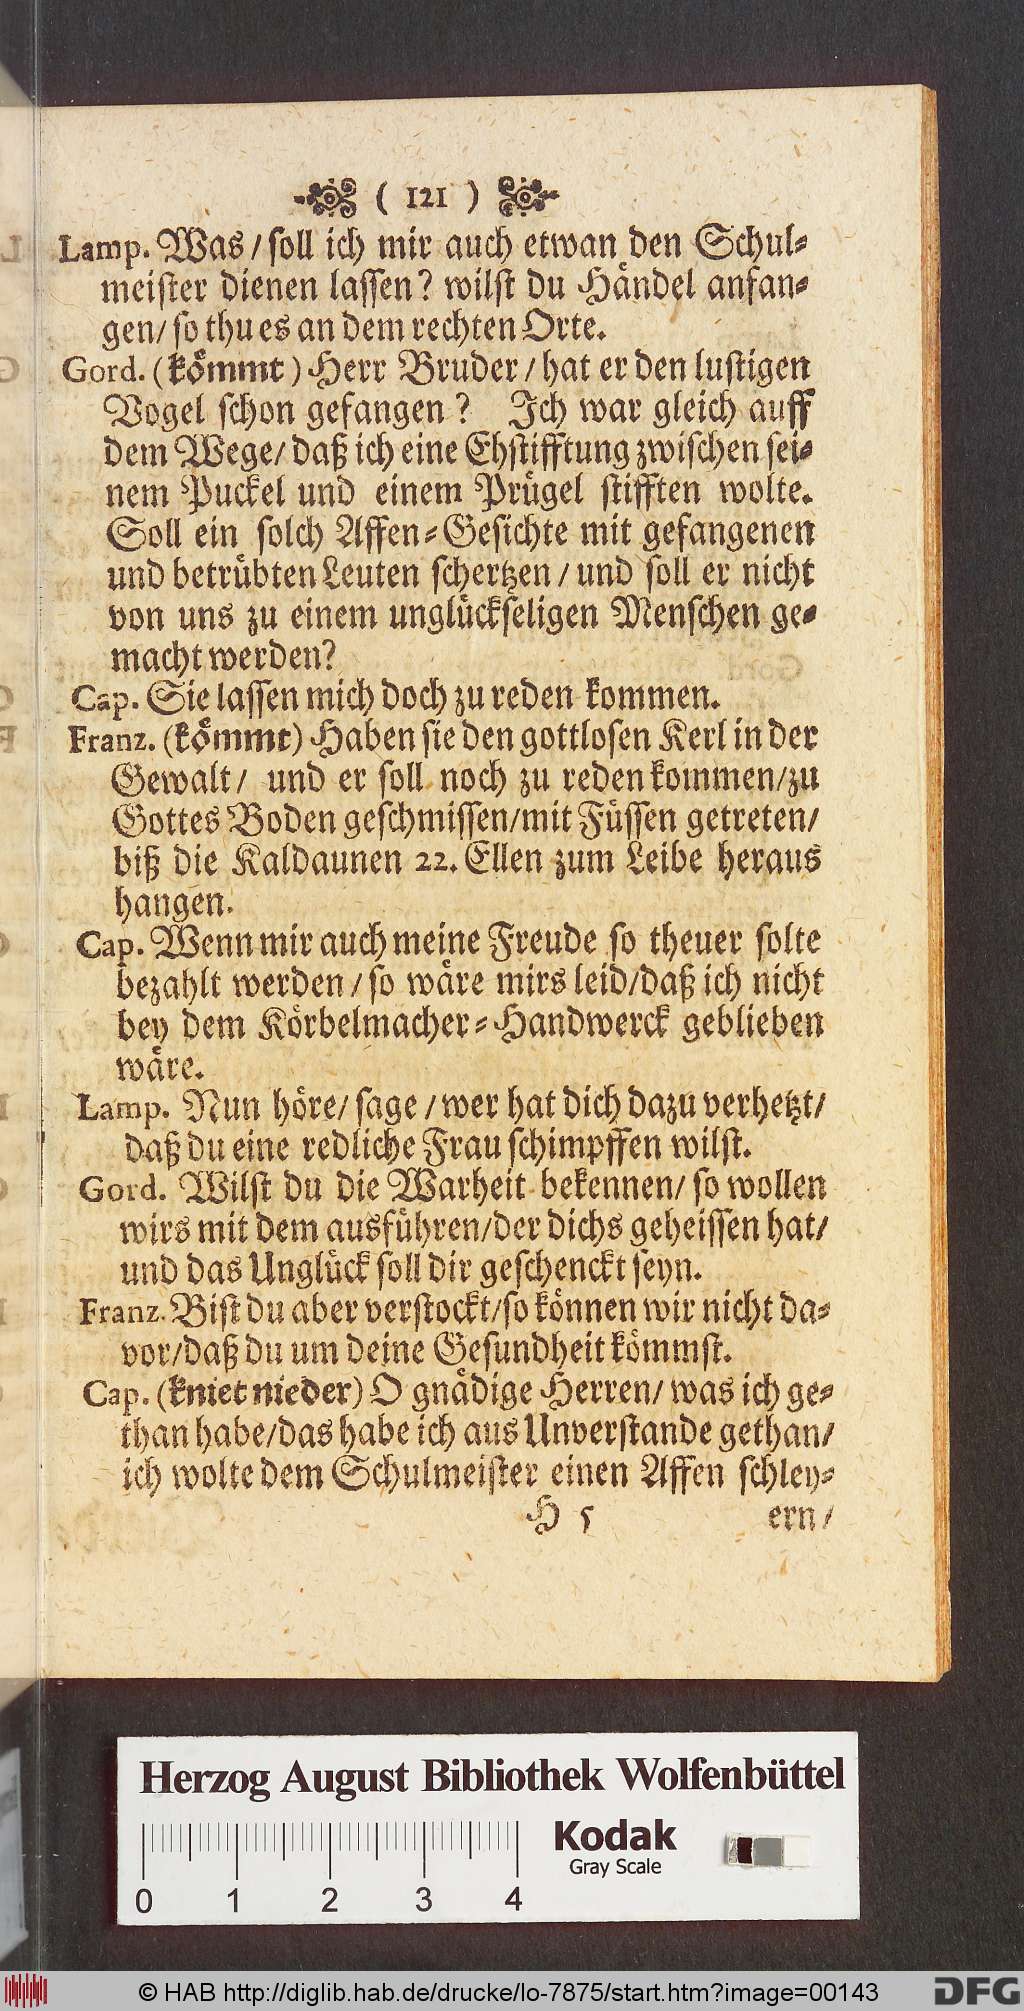 ( 121 )
Lamp. Was / soll ich mir auch etwan den Schul-
meister dienen lassen? wilst du Händel anfan-
gen/ so thu es an dem rechten Orte.
Gord. (kömmt) Herr Bruder / hat er den lustigen
Vogel schon gefangen? Ich war gleich auff
dem Wege/ daß ich eine Ehstifftung zwischen sei-
nem Puckel und einem Prügel stifften wolte.
Soll ein solch Affen-Gesichte mit gefangenen
und betrübten Leuten schertzen / und soll er nicht
von uns zu einem unglückseligen Menschen ge-
macht werden?
Cap. Sie lassen mich doch zu reden kommen.
Franz. (kömmt) Haben sie den gottlosen Kerl in der
Gewalt/ und er soll noch zu reden kommen/zu
Gottes Boden geschmissen/mit Füssen getreten/
biß die Kaldaunen 22. Ellen zum Leibe heraus
hangen.
Cap. Wenn mir auch meine Freude so theuer solte
bezahlt werden / so wäre mirs leid/daß ich nicht
bey dem Körbelmacher-Handwerck geblieben
wäre.
Lamp. Nun höre/ sage / wer hat dich dazu verhetzt/
daß du eine redliche Frau schimpffen wilst.
Gord. Wilst du die Warheit bekennen/ so wollen
wirs mit dem ausführen/der dichs geheissen hat/
und das Unglück soll dir geschenckt seyn.
Franz. Bist du aber verstockt/so können wir nicht da-
vor/daß du um deine Gesundheit kömmst.
Cap. (kniet nieder) O gnädige Herren/ was ich ge-
than habe/das habe ich aus Unverstande gethan/
ich wolte dem Schulmeister einen Affen schley-
H 5 ern/
Herzog August Bibliothek Wolfenbüttel
Kodak
Gray Scale
0 1 2 3 4
© HAB http://diglib.hab.de/drucke/lo-7875/start.htm?image=00143
DFG